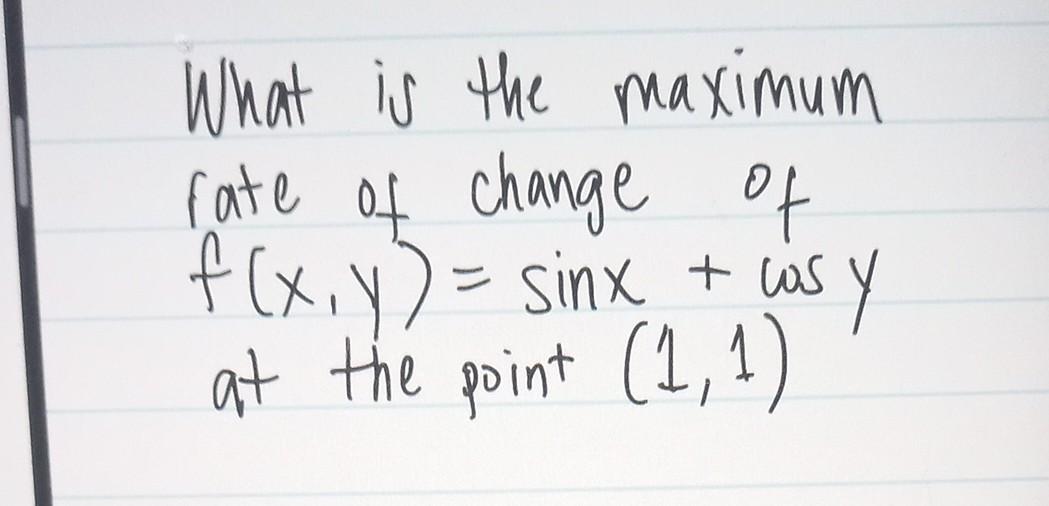 What is the maximum
rate of change of
f(x,y) = sinx + cos y
at the point (1,1)